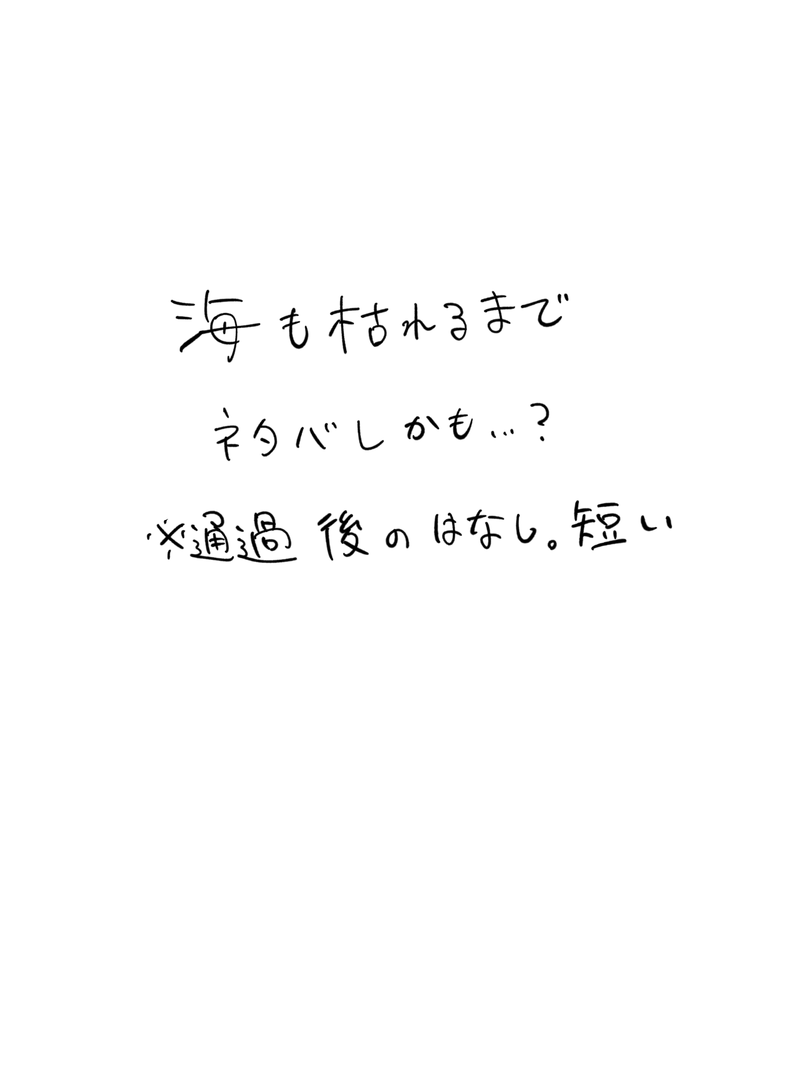 海も枯れるまで
ネタバレかも...?
※通過後のはなし。短い